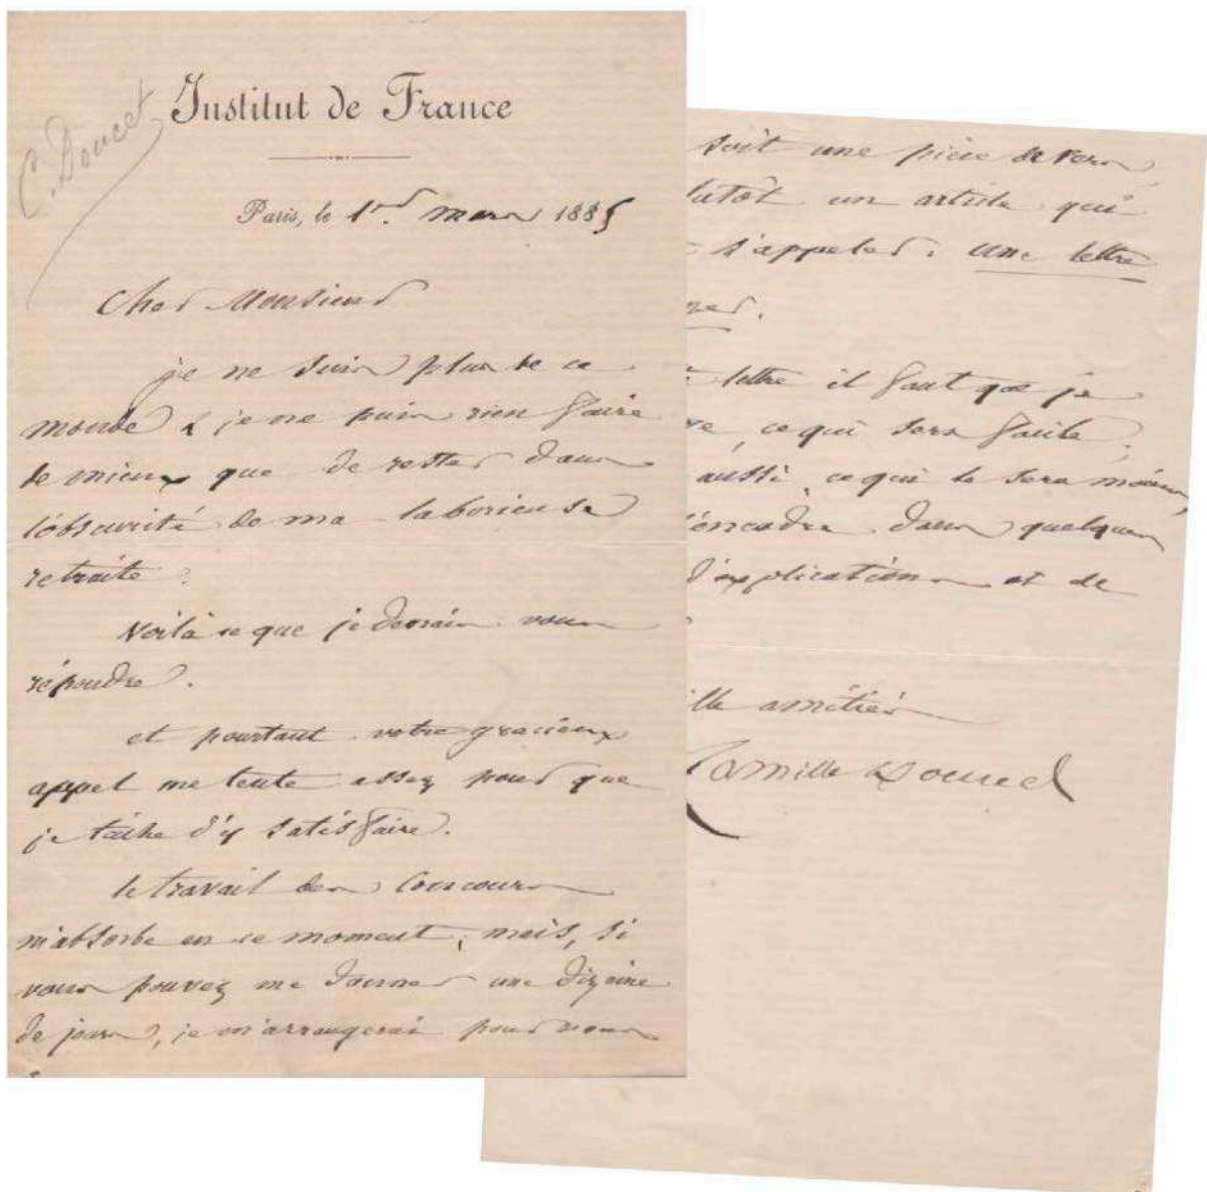 C. Doucet
Institut de France
Paris, le 1er mars 1885
Cher Monsieur
je ne suis plus de ce
monde & je ne puis rien faire
de mieux que de rester dans
l'obscurité de ma laborieuse
retraite.
Voilà ce que je devrais vous
répondre.
et pourtant votre gracieux
appel me tente assez pour que
je tâche d'y satisfaire.
le travail des Concours
m'absorbe en ce moment; mais, si
vous pouvez me donner une dizaine
de jours, je m'arrangerai pour vous
soit une pièce de vers
lutôt un article qui
s'appeler: une lettre
ner.
lettre il faut que je
ve, ce qui sera facile,
aussi, ce qui le sera moins,
l'encadre dans quelques
d'explications et de
ille amitiés
Camille Doucet